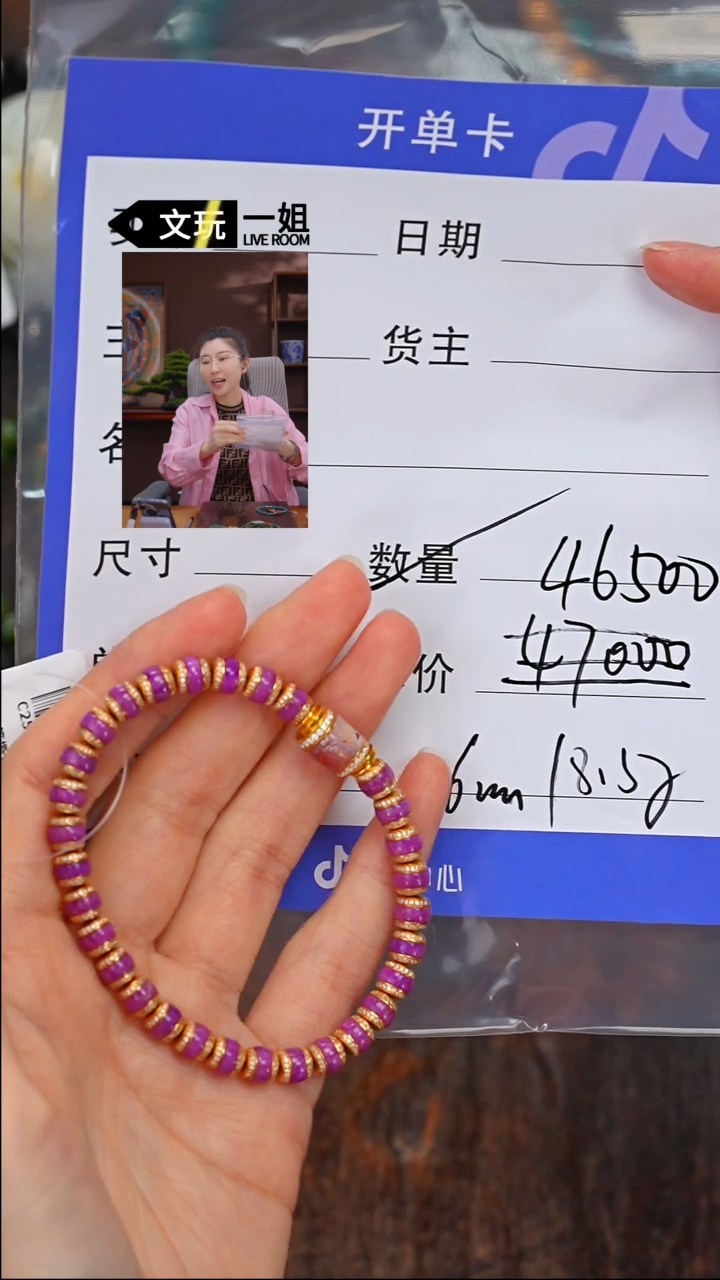 开单卡
文玩一姐
LIVE ROOM
日期
货主
尺寸 数量 46500
价 47000
6mm 18.5g
心
C25